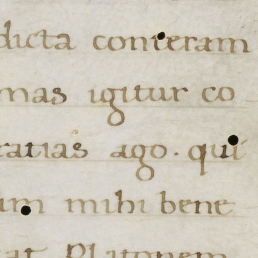 dicta conteram
mas igitur co
ratias ago. qui
um mihi bene
tat Platonem